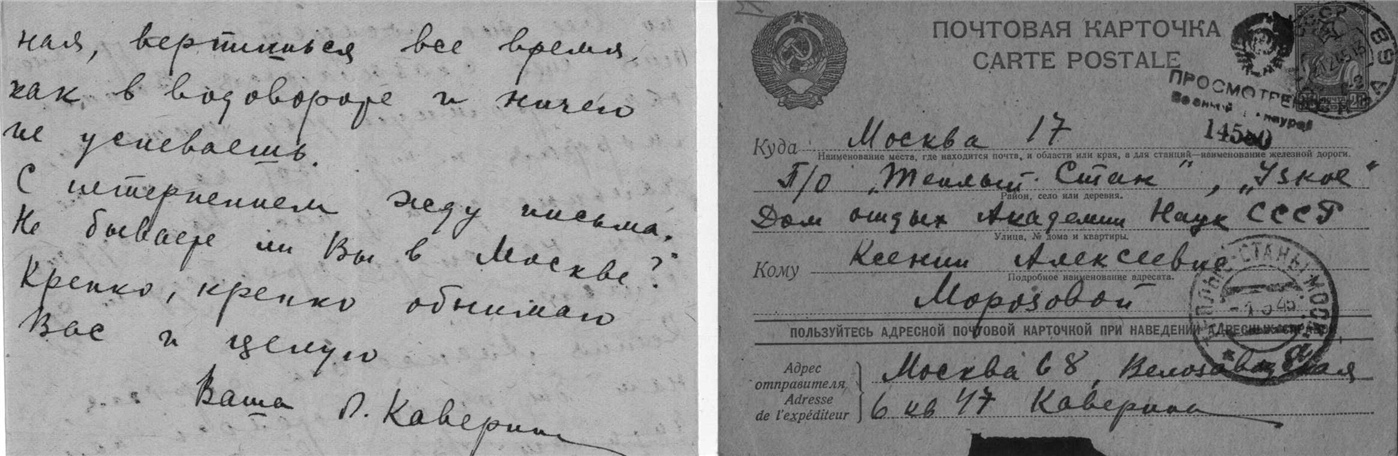 ная, вертишься все время,
как в водовороте и ничего
не успеваешь.
С нетерпением жду письма.
Не бываете ли Вы в Москве?
Крепко, крепко обнимаю
Вас и целую
Ваша Л. Каверина
ПОЧТОВАЯ КАРТОЧКА
CARTE POSTALE
СССР
ПРОСМОТРЕНО
Военной Цензурой
Куда Москва 17
Наименование места, где находится почта, и области или края, а для станций—наименование железной дороги.
П/о „Теплый Стан“, „Узкое“
Район, село или деревня.
Дом отдых Академии Наук СССР
Улица, № дома и квартиры.
Кому Ксении Алексеевне
Подробное наименование адресата.
Морозовой
ПОЛЬЗУЙТЕСЬ АДРЕСНОЙ ПОЧТОВОЙ КАРТОЧКОЙ ПРИ НАВЕДЕНИИ АДРЕСНЫХ
Адрес
отправителя
Adresse
de l'expéditeur
Москва 68, Велозаводская
6 кв 47 Каверина